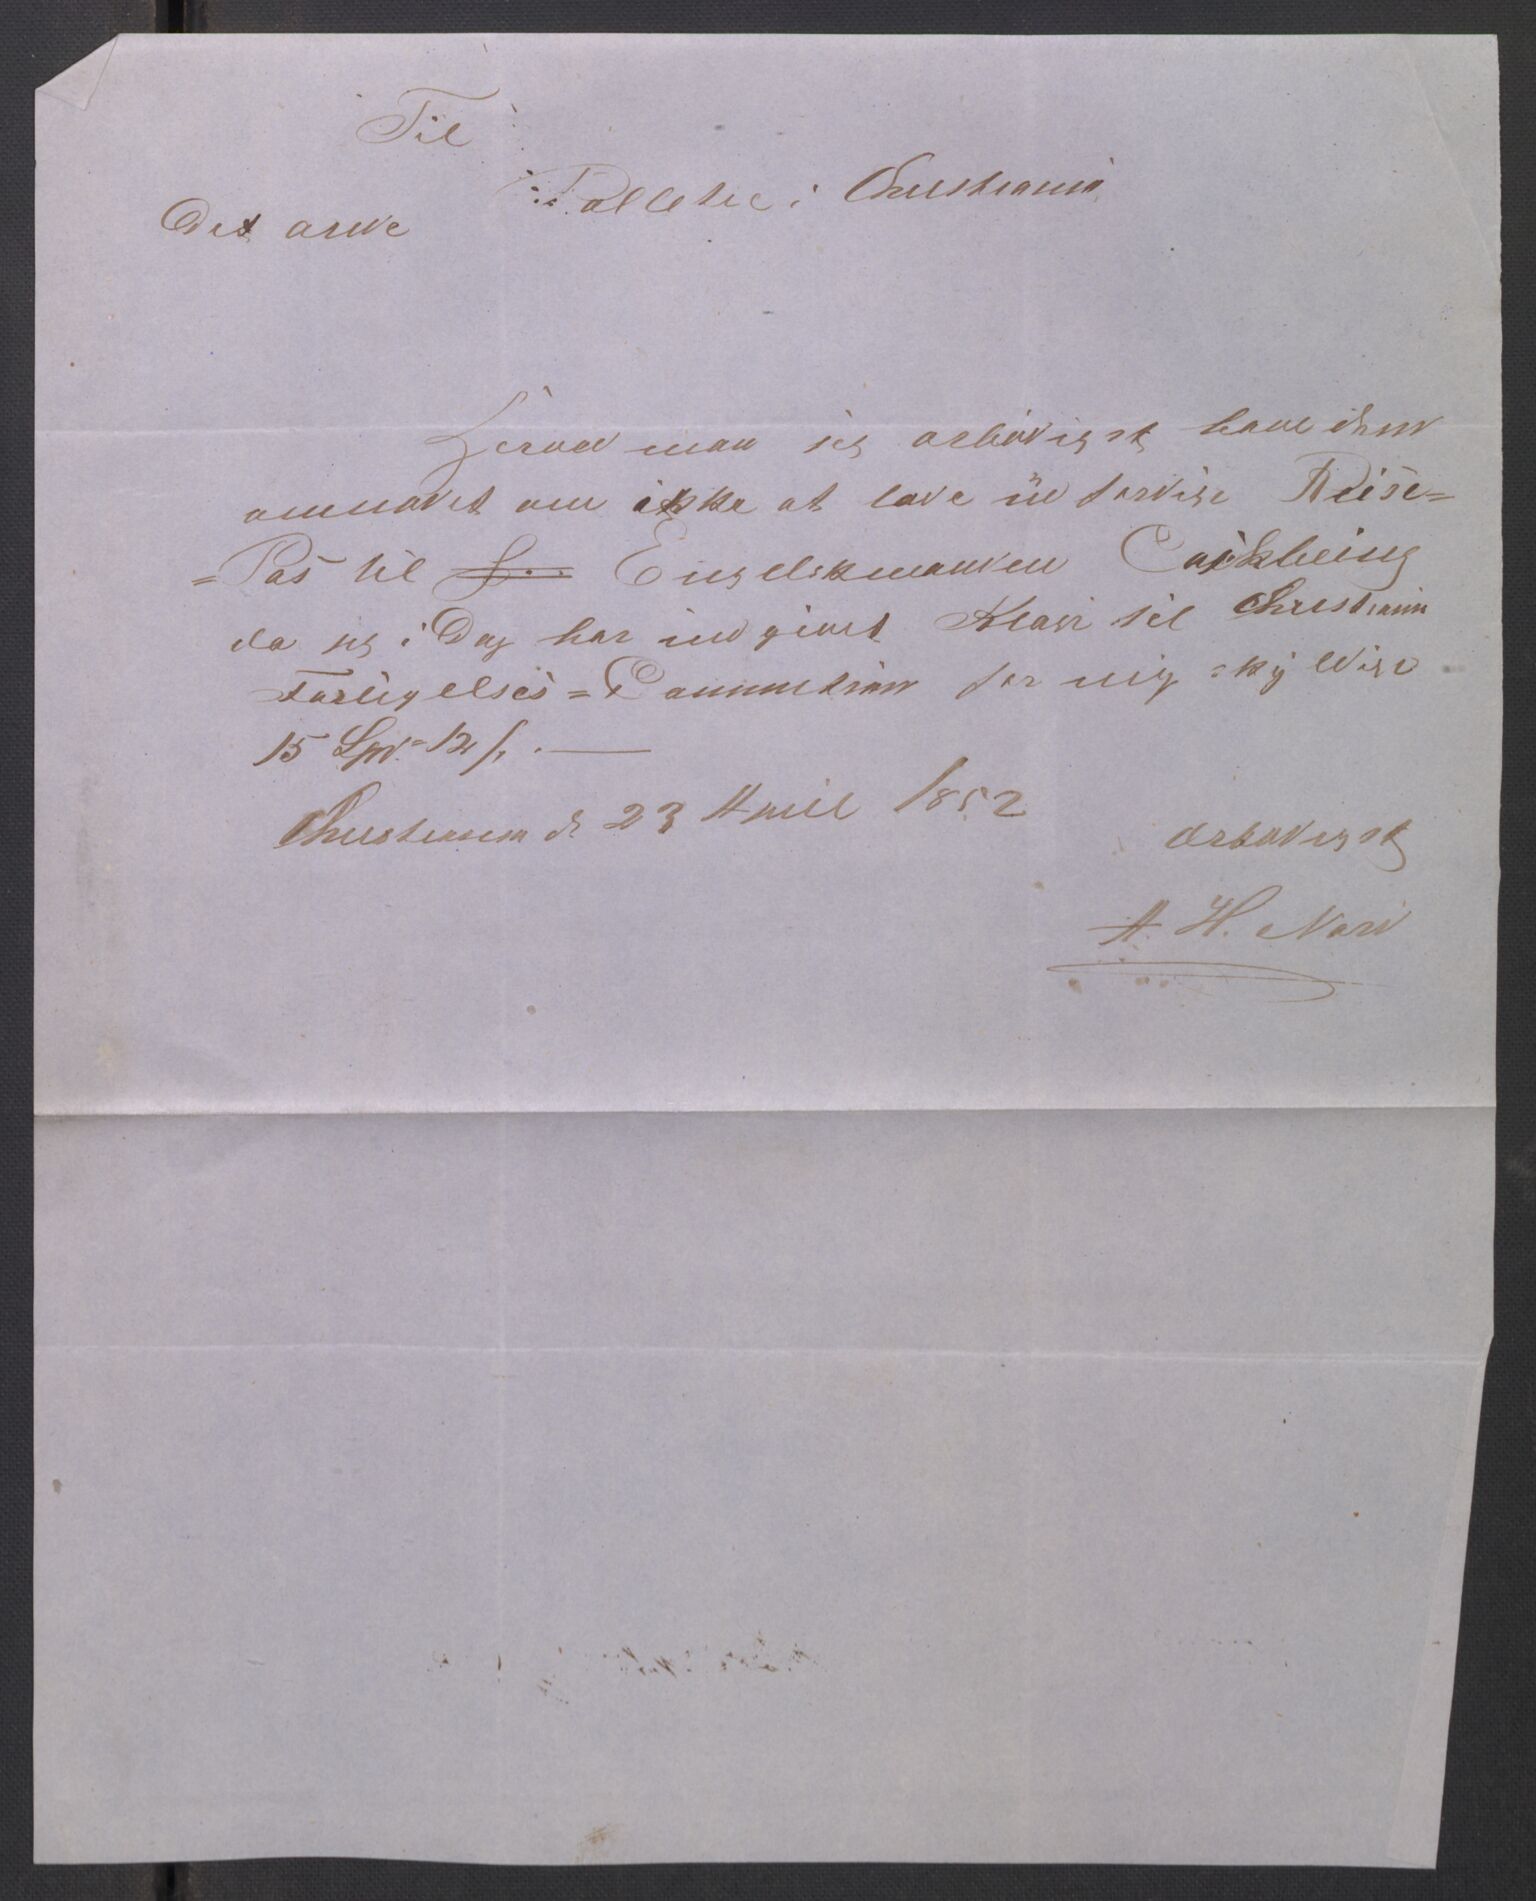 Til
Det ærede Politie i Christiania
Herved maa jeg ærbødigst have dem
anmodet om ikke at lade udfærdige Reise=
=Pas til Engelskmanden
da jeg i Dag har indgivet Klage til Christiania
Forligelses=Commission for mig skyldige
15 Spd. 12 ß. —
Christiania d 23 April 1852
ærbødigst
A. H.